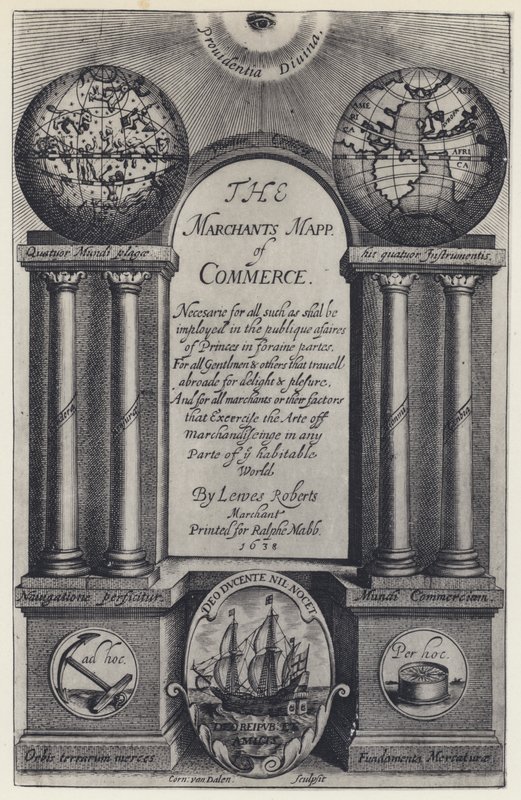 Providentia Divina.
AME
RI
CA
ASI
AFRI
CA
THE
MARCHANTS MAPP.
of
COMMERCE.
Necesarie for all such as shal be
imployed in the publique afaires
of Princes in foraine partes.
For all Gentlmen & others that travell
abroade for delight & plesure.
And for all marchants or their factors
that Exercise the Arte off
marchandiseinge in any
Parte of ẏ habitable
World
By Lewes Roberts
Marchant
Printed for Ralphe Mabb.
1638
Quatuor Mundi plagæ
his quatuor Instrumentis.
Navigatione perficitur.
Mundi Commercium.
ad hoc.
Per hoc.
DEO DVCENTE NIL NOCET
REIPVB. ET
AMICIS
Orbis terrarum merces
Fundamenta Mercaturæ
Corn. van Dalen. sculpsit